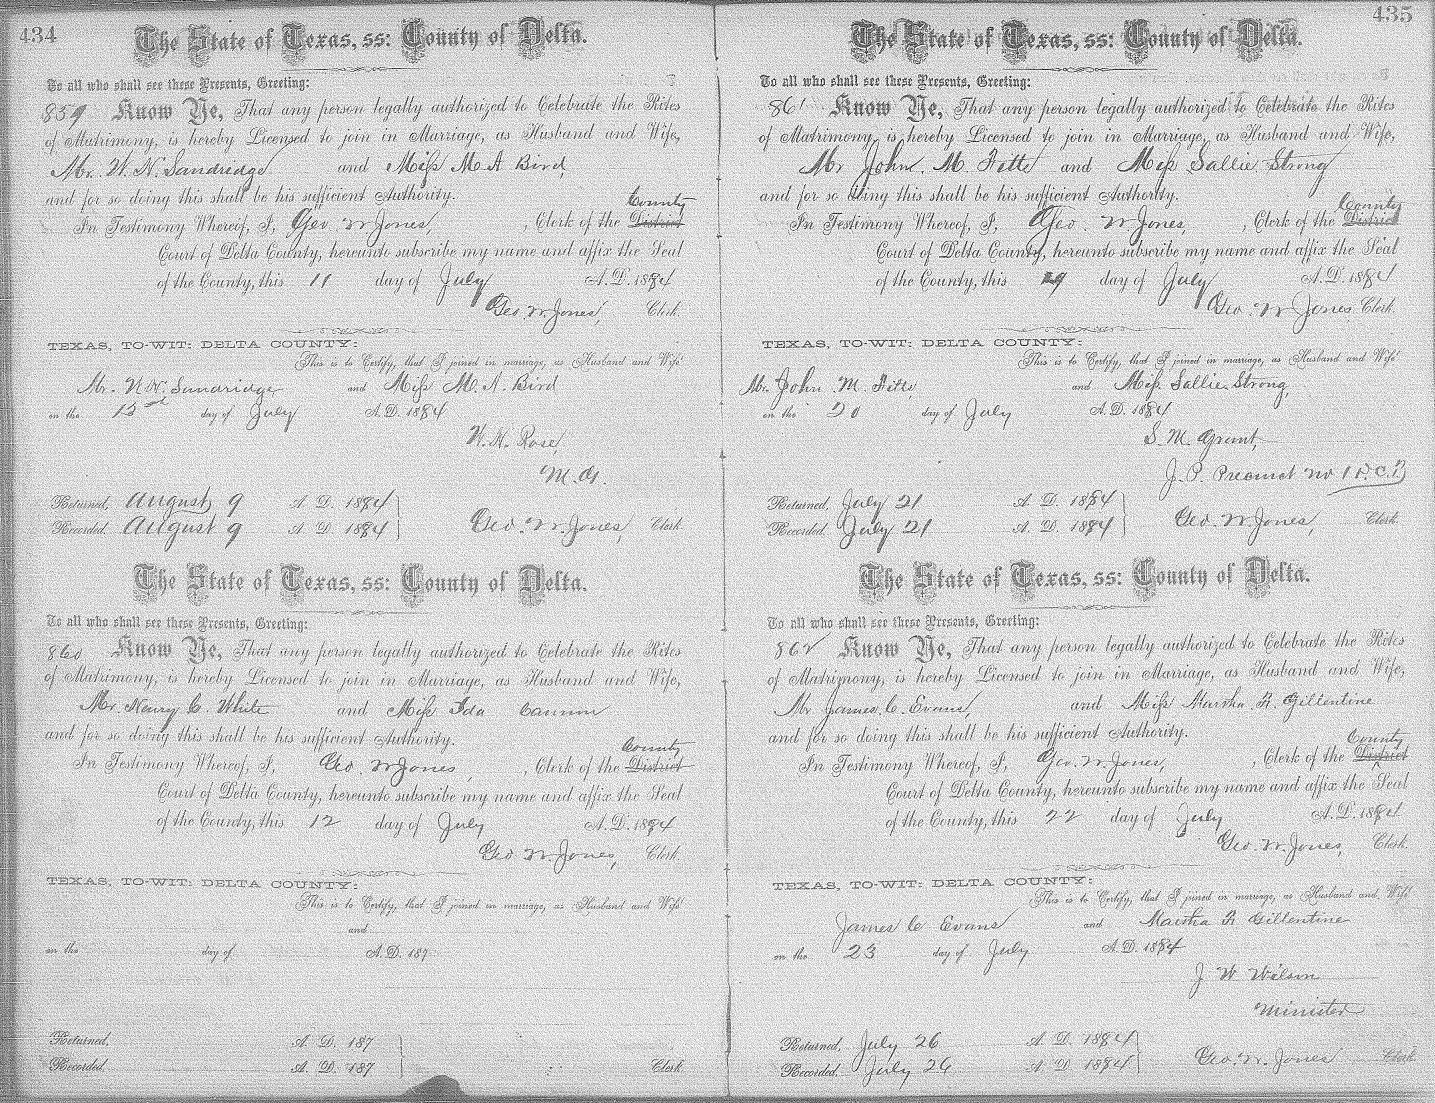 434
The State of Texas, ss: County of Delta.
To all who shall see these Presents, Greeting:
859 Know Ye, That any person legally authorized to Celebrate the Rites
of Matrimony, is hereby Licensed to join in Marriage, as Husband and Wife,
Mr. W. N. Sandridge and Miss M A Bird,
and for so doing this shall be his sufficient Authority.
County
In Testimony Whereof, I, Geo. W Jones, , Clerk of the District
Court of Delta County, hereunto subscribe my name and affix the Seal
of the County, this 11 day of July A. D. 1884
Geo. W. Jones, Clerk.
TEXAS, TO-WIT: DELTA COUNTY:
This is to Certify, that I joined in marriage, as Husband and Wife
Mr. W. N. Sandridge and Miss M. A. Bird
on the day of July A. D. 1884
W. H. Rose,
M. G.
Returned, August 9 A. D. 1884
Recorded, August 9 A. D. 1884 Geo. W. Jones, Clerk
The State of Texas, ss: County of Delta.
To all who shall see these Presents, Greeting:
860 Know Ye, That any person legally authorized to Celebrate the Rites
of Matrimony, is hereby Licensed to join in Marriage, as Husband and Wife,
Mr. Henry C. White and Miss Ida Cannon
and for so doing this shall be his sufficient Authority.
County
In Testimony Whereof, I, Geo. W Jones, , Clerk of the District
Court of Delta County, hereunto subscribe my name and affix the Seal
of the County, this 12 day of July A. D. 1884
Geo W Jones, Clerk.
TEXAS, TO-WIT: DELTA COUNTY:
This is to Certify, that I joined in marriage, as Husband and Wife
and
on the day of A. D. 187
Returned, A. D. 187
Recorded, A. D. 187 Clerk
435
The State of Texas, ss: County of Delta.
To all who shall see these Presents, Greeting:
861 Know Ye, That any person legally authorized to Celebrate the Rites
of Matrimony, is hereby Licensed to join in Marriage, as Husband and Wife,
Mr John. M. Fitts and Miss Sallie Strong
and for so doing this shall be his sufficient Authority.
County
In Testimony Whereof, I, Geo. W Jones, , Clerk of the District
Court of Delta County, hereunto subscribe my name and affix the Seal
of the County, this 19 day of July A. D. 1884
Geo. W Jones, Clerk.
TEXAS, TO-WIT: DELTA COUNTY:
This is to Certify, that I joined in marriage, as Husband and Wife
Mr. John M. Fitts, and Miss Sallie Strong,
on the 20 day of July A. D. 1884
S. M. Grant,
J. P. Precinct No 1 D. C. T
Returned, July 21 A. D. 1884
Recorded, July 21 A. D. 1884 Geo. W. Jones, Clerk.
The State of Texas, ss: County of Delta.
To all who shall see these Presents, Greeting:
862 Know Ye, That any person legally authorized to Celebrate the Rites
of Matrimony, is hereby Licensed to join in Marriage, as Husband and Wife,
Mr James. C. Evans, and Miss Martha R. Gillentine
and for so doing this shall be his sufficient Authority.
County
In Testimony Whereof, I, Geo. W. Jones, , Clerk of the District
Court of Delta County, hereunto subscribe my name and affix the Seal
of the County, this 22 day of July A. D. 1884
Geo. W. Jones, Clerk.
TEXAS, TO-WIT: DELTA COUNTY:
This is to Certify, that I joined in marriage, as Husband and Wife
James C Evans and Martha R Gillentine
on the 23 day of July A. D. 1884
J W Wilson
Minister
Returned, July 26 A. D. 1884
Recorded, July 26 A. D. 1884 Geo. W. Jones Clerk